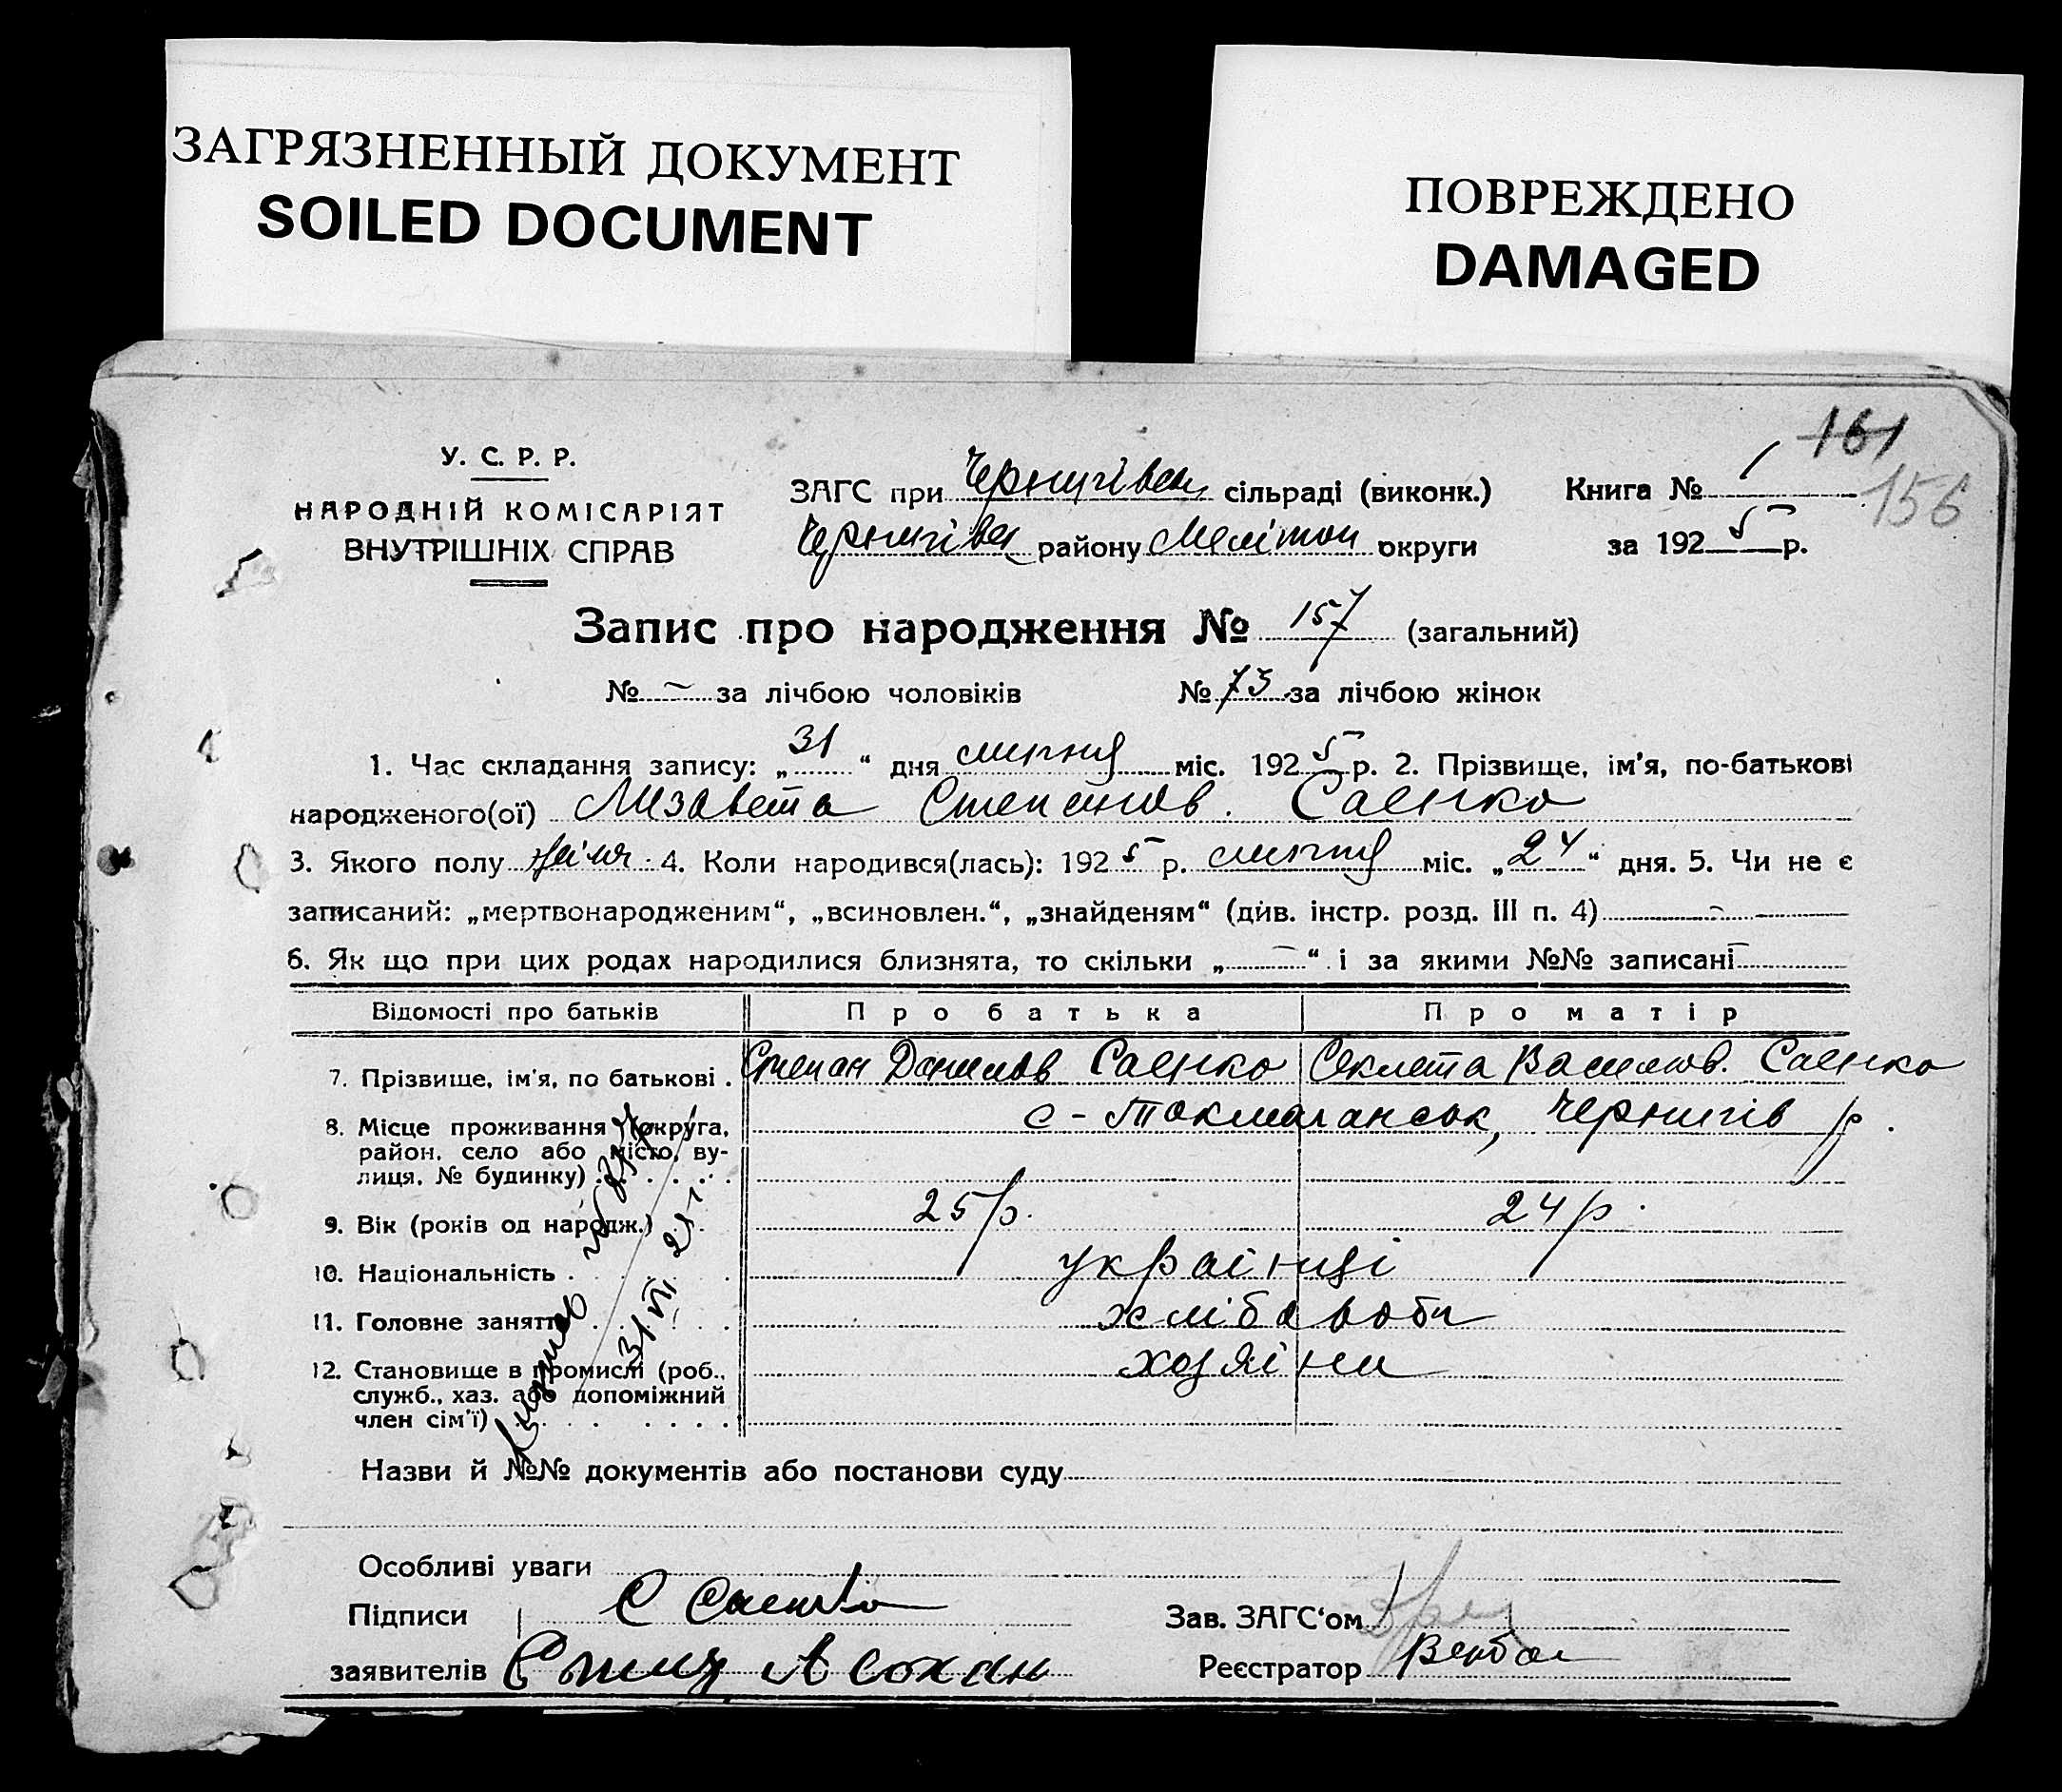 ЗАГРЯЗНЕННЫЙ ДОКУМЕНТ
SOILED DOCUMENT
ПОВРЕЖДЕНО
DAMAGED
161
156
У. С. Р. Р.
НАРОДНІЙ КОМІСАРІЯТ
ВНУТРІШНІХ СПРАВ
ЗАГС при Чернигівськ сільраді (виконк.)
Чернигівск району Мелітоп округи
Книга № 1
за 1925 р.
Запис про народження № 157 (загальний)
№ – за лічбою чоловіків № 73 за лічбою жінок
1. Час складання запису: „31“ дня липня міс. 1925 р. 2. Прізвище, ім'я, по-батькові
народженого(ої) Лизавета Степанов. Саенко
3. Якого полу жіноч. 4. Коли народився(лась): 1925 р. липня міс. „24“ дня. 5. Чи не є
записаний: „мертвонародженим“, „всиновлен.“, „знайденям“ (див. інстр. розд. III п. 4) –
6. Як що при цих родах народилися близнята, то скільки „–“ і за якими №№ записані –
Відомості про батьків Про батька Про матір
7. Прізвище, ім'я, по батькові . Степан Данилов Саенко Секлета Васильов. Саенко
8. Місце проживання (округа, район, село або місто, вулиця, № будинку) с-Токмачанськ, Чернигів р.
9. Вік (років од народж.) 25 р. 24 р.
10. Національність украінці
11. Головне заняття хлібороби
12. Становище в промислі (роб., служб., хаз. або допоміжний член сім'ї) хозяіни
31/VII 25 г.
Назви й №№ документів або постанови суду
Особливі уваги
Підписи С Саенко
заявителів
Зав. ЗАГС'ом
Реєстратор Верба